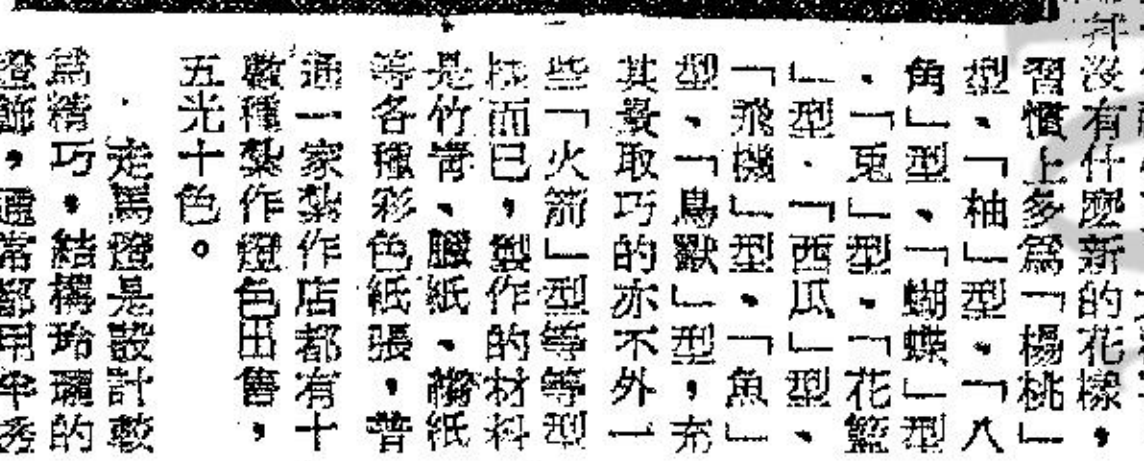 沒有什麼新的花樣，
習慣上多爲「楊桃」
型、「柚」型、「八
角」型、「蝴蝶」型
、「兎」型、「花籃
」型、「西瓜」型、
「飛機」型、「魚」
型、「鳥獸」型，充
其量取巧的亦不外一
些「火箭」型等等型
而已，製作的材料
是竹靑、臘紙、縐紙
等各種彩色紙張，普
通一家紮作店都有十
數種紮作燈色出售，
五光十色。
走馬燈是設計較
爲精巧，結構玲瓏的
燈飾，通常都用